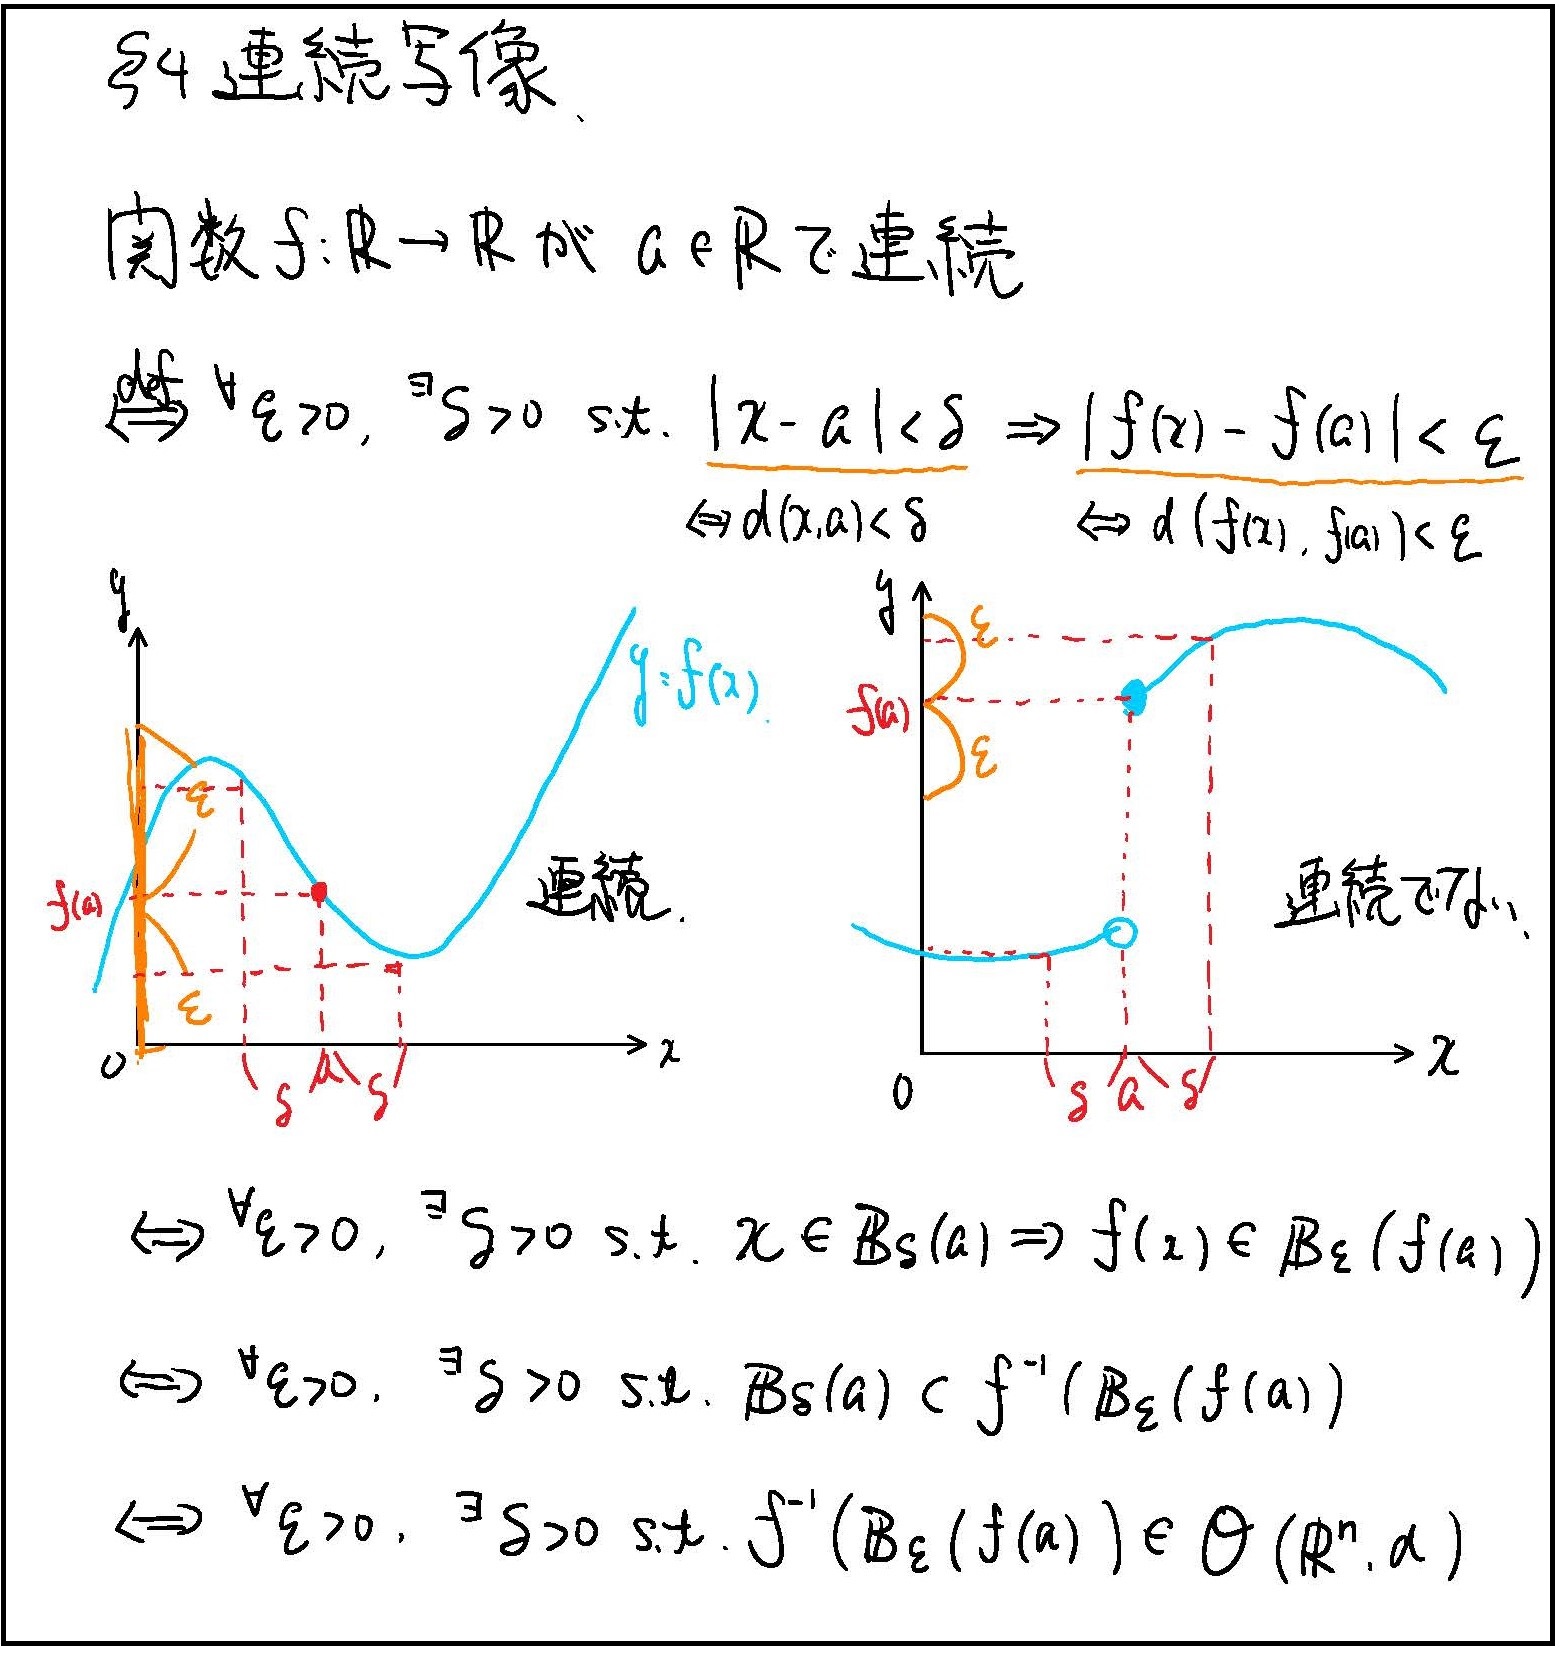 §4 連続写像、
関数 f:ℝ→ℝ が a∈ℝ で連続
⇔(def) ∀ε>0, ∃δ>0 s.t. |x-a|<δ ⇒ |f(x)-f(a)|<ε
⇔ d(x,a)<δ ⇔ d(f(x), f(a))<ε
y
y=f(x).
ε
f(a)
ε
連続.
0
x
δ a δ
y
ε
f(a)
ε
連続でない、
0
x
δ a δ
⇔ ∀ε>0, ∃δ>0 s.t. x∈𝔹δ(a) ⇒ f(x)∈𝔹ε(f(a))
⇔ ∀ε>0, ∃δ>0 s.t. 𝔹δ(a) ⊂ f⁻¹(𝔹ε(f(a))
⇔ ∀ε>0, ∃δ>0 s.t. f⁻¹(𝔹ε(f(a)) ∈ 𝒪(ℝⁿ, d)